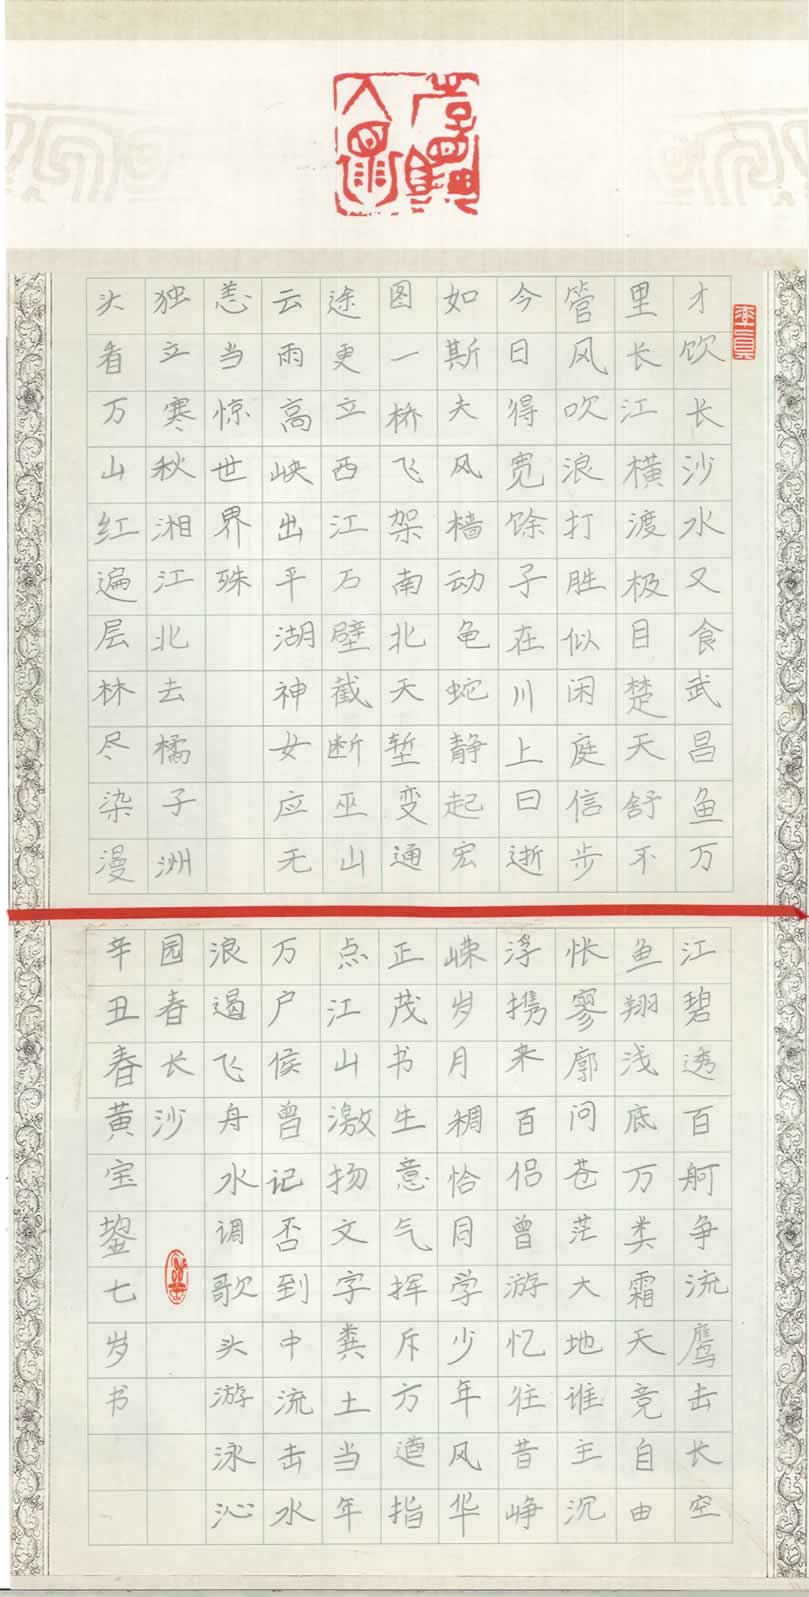 才饮长沙水又食武昌鱼万
里长江横渡极目楚天舒不
管风吹浪打胜似闲庭信步
今日得宽馀子在川上曰逝
如斯夫风樯动龟蛇静起宏
图一桥飞架南北天堑变通
途更立西江石壁截断巫山
云雨高峡出平湖神女应无
恙当惊世界殊
独立寒秋湘江北去橘子洲
头看万山红遍层林尽染漫
江碧透百舸争流鹰击长空
鱼翔浅底万类霜天竞自由
怅寥廓问苍茫大地谁主沉
浮携来百侣曾游忆往昔峥
嵘岁月稠恰同学少年风华
正茂书生意气挥斥方遒指
点江山激扬文字粪土当年
万户侯曾记否到中流击水
浪遏飞舟水调歌头游泳沁
园春长沙
辛丑春黄宝鋆七岁书